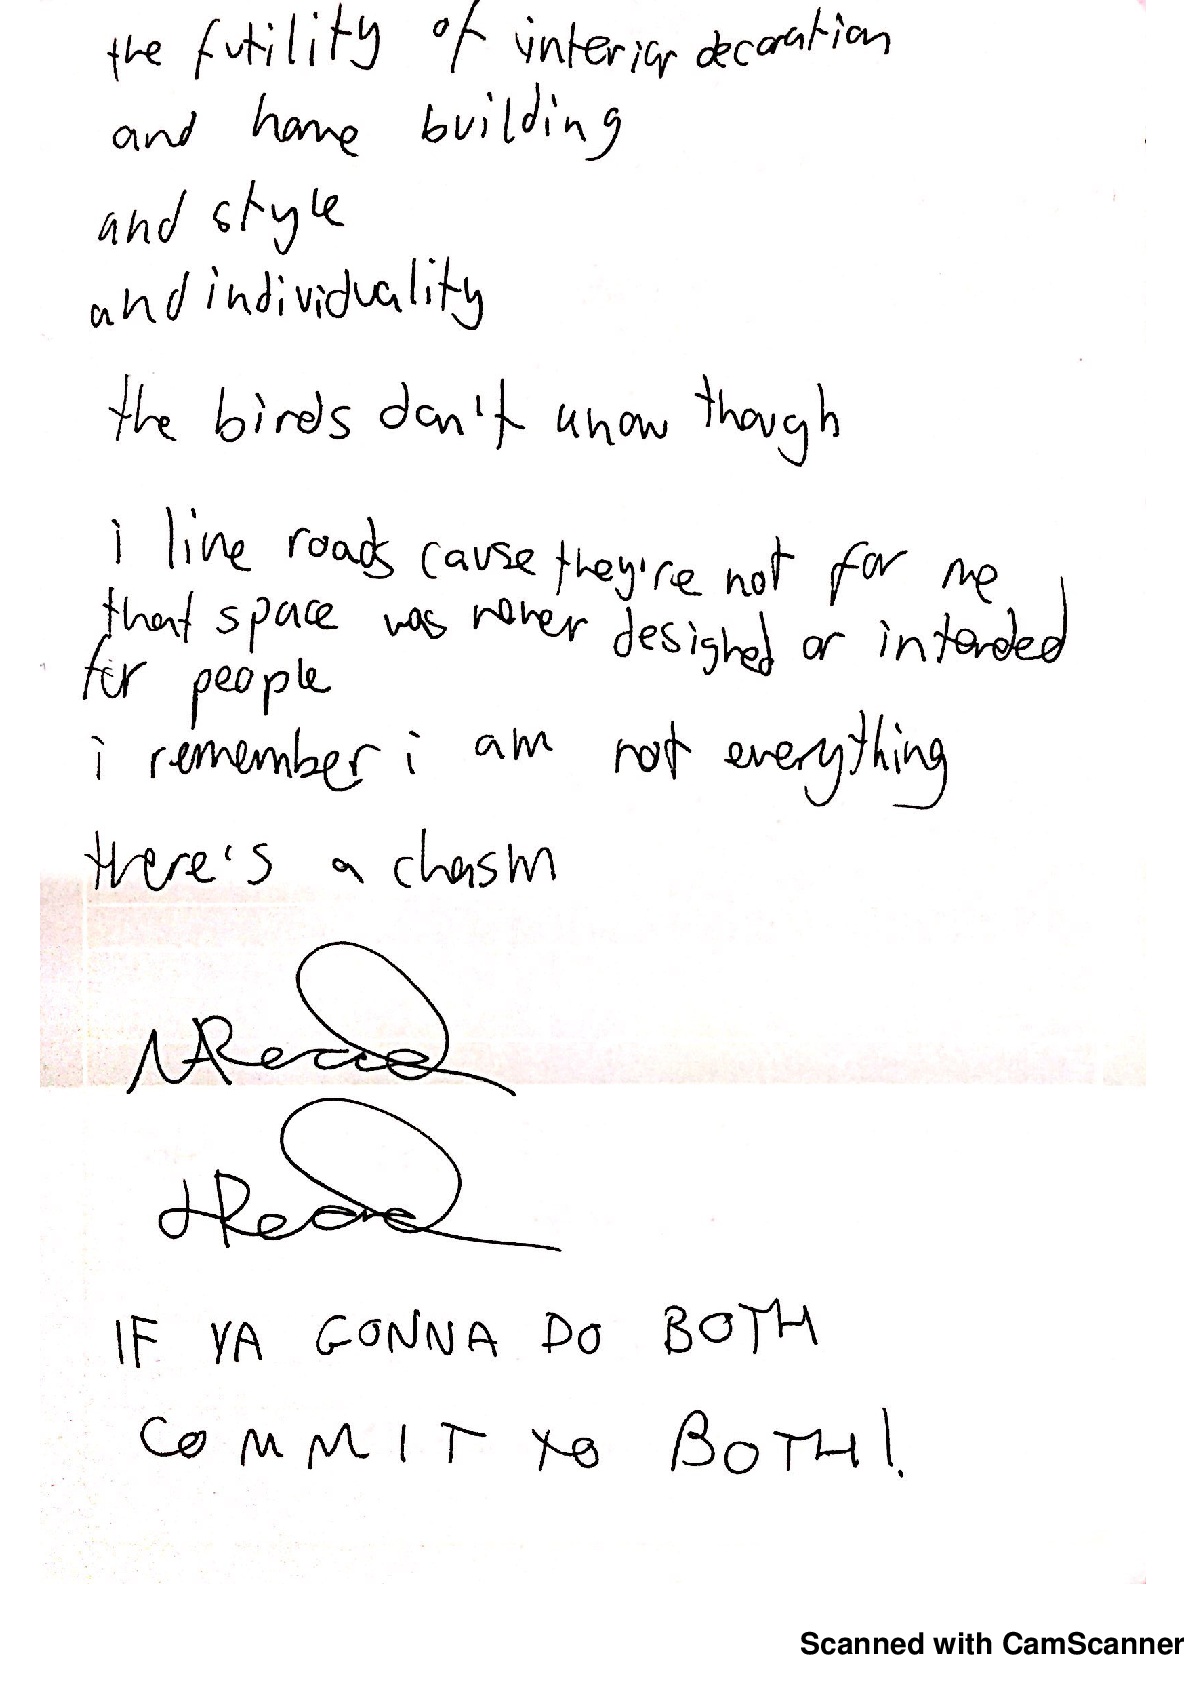 the futility of interior decoration
and home building
and style
and individuality
the birds don't know though
i line roads cause they're not for me
that space was never designed or intended
for people
i remember i am not everything
there's a chasm
IF YA GONNA DO BOTH
COMMIT TO BOTH!
Scanned with CamScanner